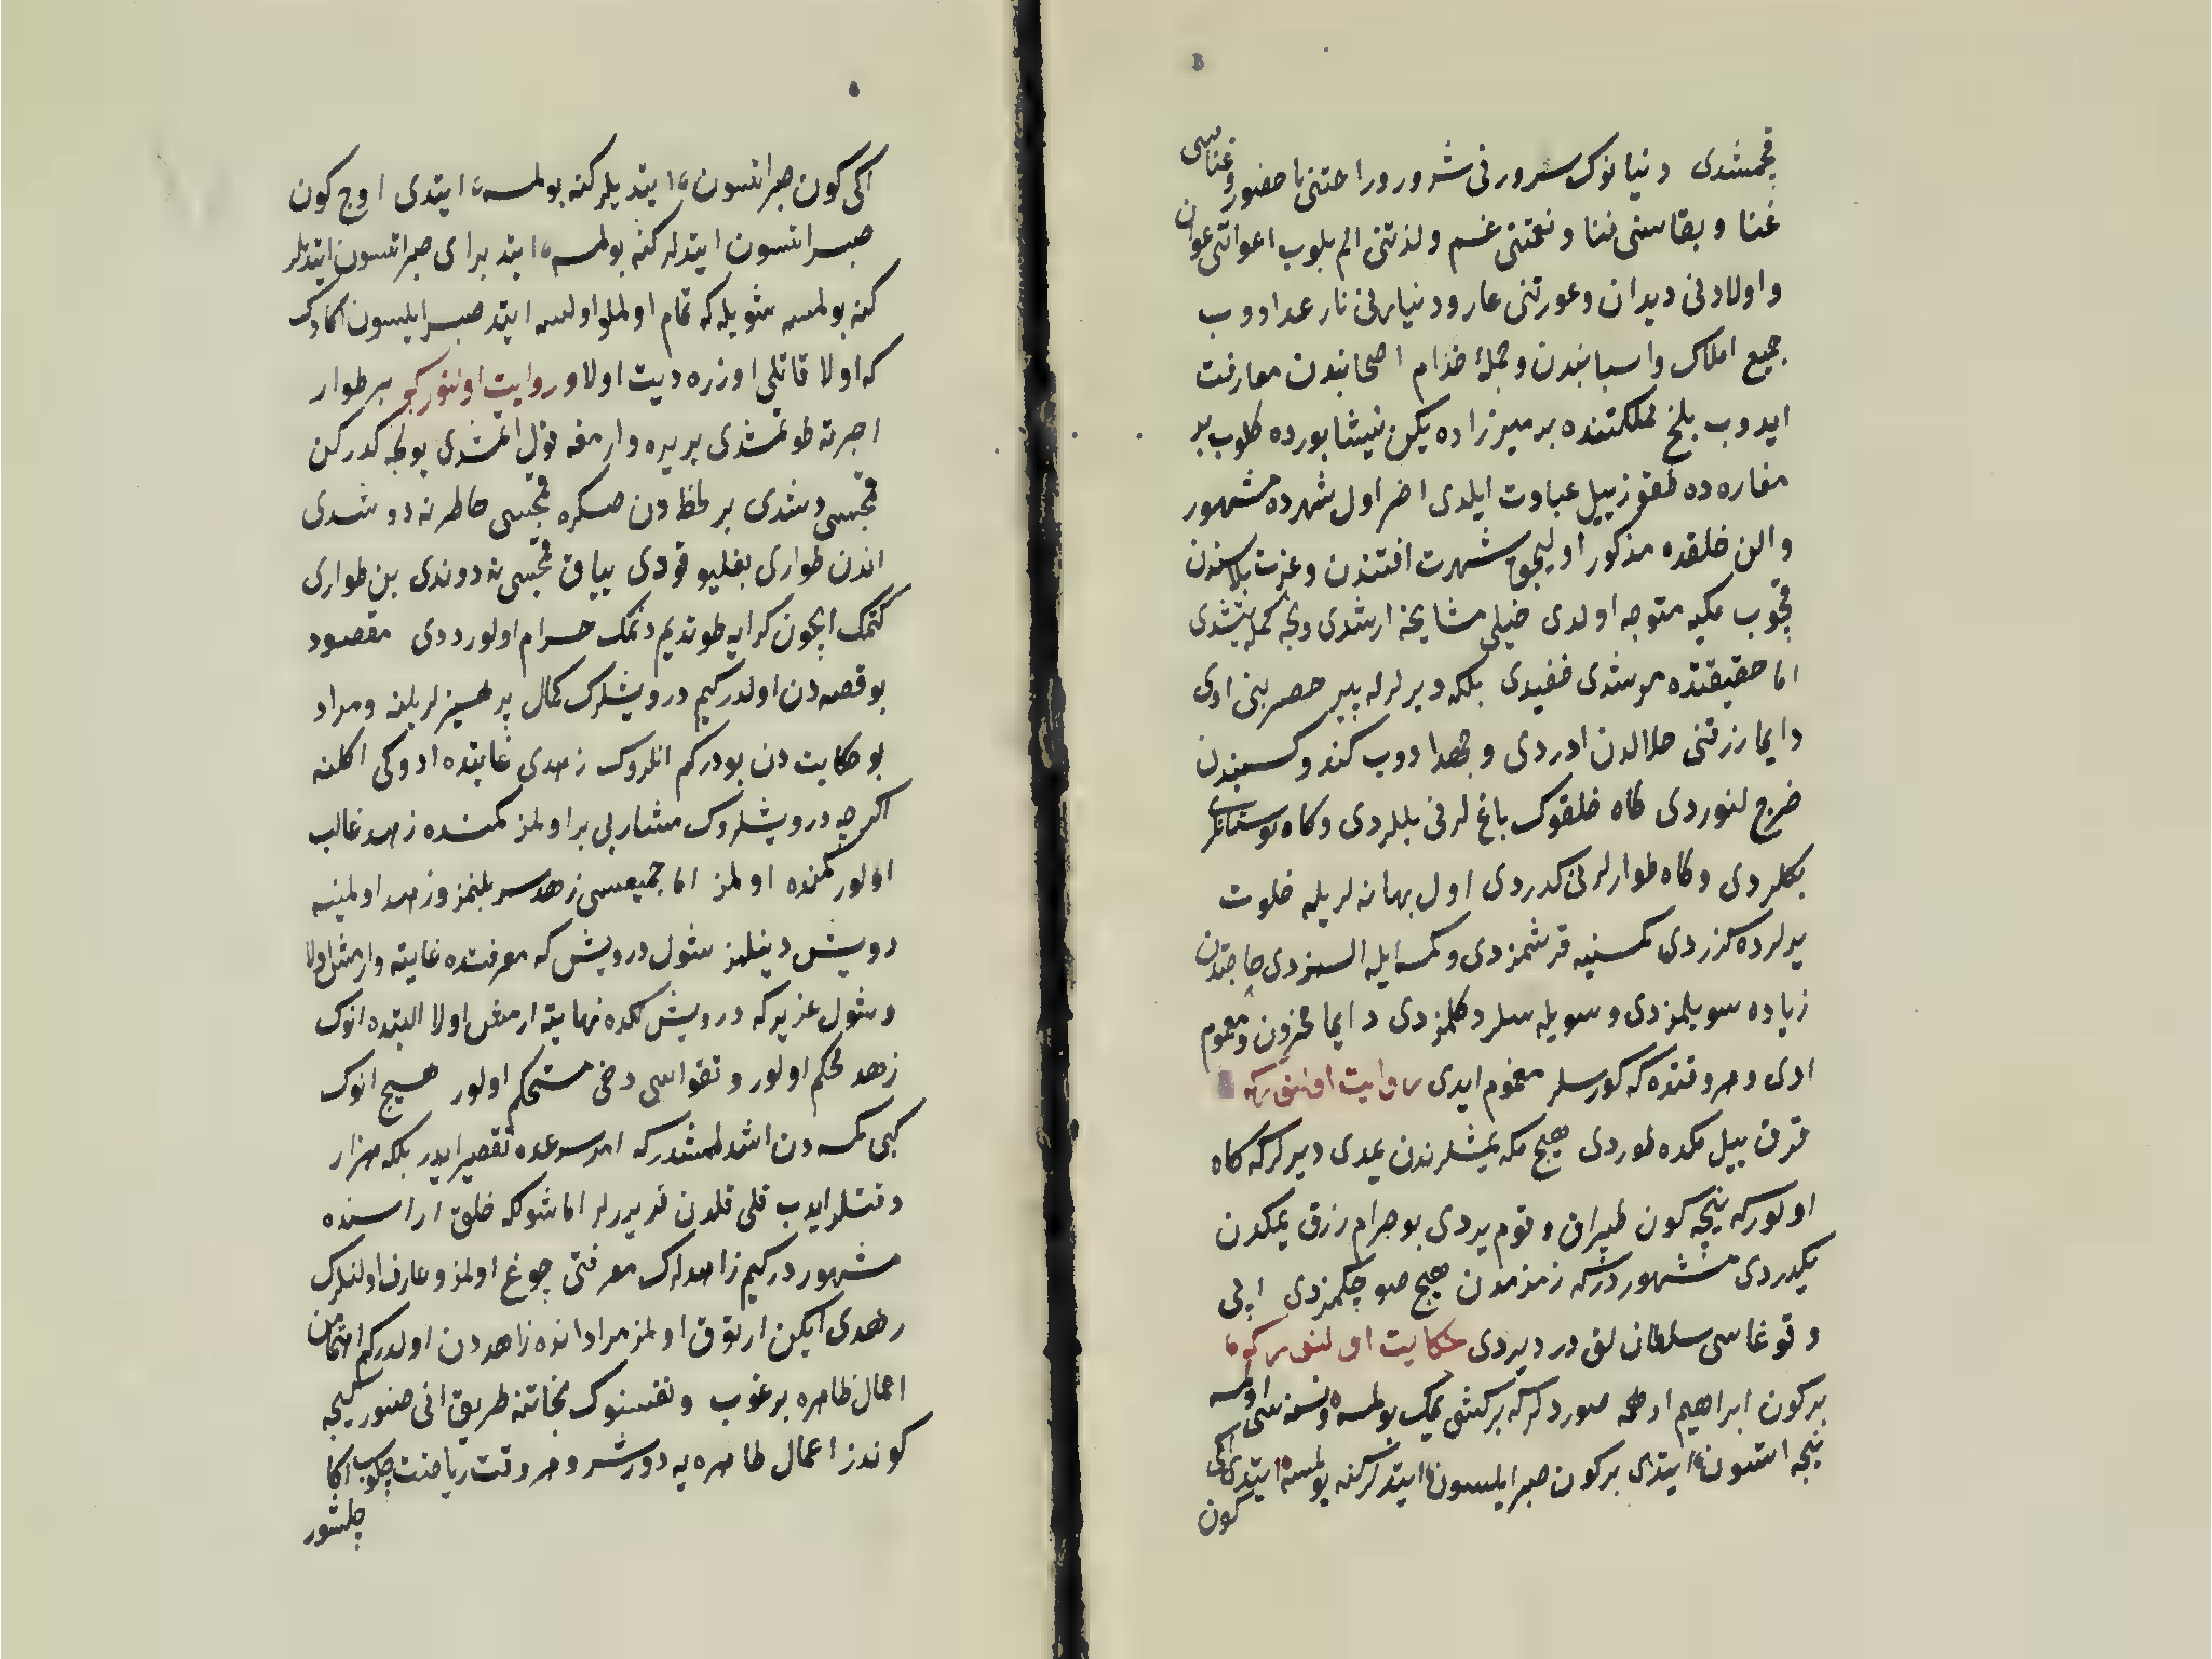 قچمشدی دنیانوک سرورنی شرور و راحتنی نا حضور و غناسی
غنا و بقاسنی فنا و نعمتنی غم و لذتنی الم بلوب اعوانی عوان
و اولادنی دیدان و عورتنی عار و دنیارنی نار عد ادوب
جمیع املاک و اسبابندن و جملۀ خدام اصحابندن مفارقت
ایدوب بلخ مملکتنده بر میرزاده یکن نیشابورده کلوب بر
مغاره ده طقوز ییل عبادت ایلدی اخر اول شهرده مشهور
والن خلقده مذکور اولیجق شهرت افتندن و عزت بلاسندن
قچوب مکیه متوجه اولدی خیلی مشایخه ارشدی و نجه کمله یتشدی
اما حقیقتده مرشدی خفیدی بلکه دیرلرله پیر خضر نبی ادی
دایما رزقنی حلالدن ادردی و جهد ادوب کند و کسبندن
خرج لنوردی کاه خلقوک باغ لرنی بللردی و کاه بوستانلر
بکلردی و کاه طوارلرنی کدردی اول بهانه لریله خلوت
یرلرده کزردی کمسیه قرشمزدی و کمسه ایله السمزدی حاجتدن
زیاده سویلمزدی و سویله سلر دکلمزدی دایما محزون و مغموم
ادی و هر وقتده که کورسلر مغموم ایدی روایت اولنور که
قرق ییل مکده طوردی هیچ مکه یمشلرندن یمدی دیرلرکه کاه
اولورکه نیچه کون طپراق و قوم یردی بو حرام رزق یمکدن
یکدردی مشهوردرکه زمزمدن هیچ صو چکمزدی ایپی
و قوغاسی سلطان لق در دیردی حکایت اولنور که
برکون ابراهیم ادهمه صوردلرکه بر کشی یمک بولمسه و نسنه سی اولمسه
نیجه اتسون ایتدی برکون صبر ایلسون ایتدلر کنه بولمسه ایتدی اکی
کون
اکی کون صبر اتسون ایتدیلر کنه بولمسه ایتدی اوچ کون
صبر اتسون ایتدلر کنه بولمسه ایتد بر ای صبر اتسون ایتدلر
کنه بولمسه شویله که تمام اولملو اولسه ایتد صبر ایلسون
که اولا قاتلی اوزره دیت اولا و روایت اولنورکه بر طوار
اجرته طوتمشدی بر یره وارمغه قول اتمشدی یولجه کدرکن
قمچسی دشدی بر لحظه دن صکره قمچسی خاطرنه دوشدی
اندن طواری بغلیو قودی یاق قمچسی نه دوندی بن طواری
کتمک ایچون کرایه طوتدیم دنمک حرام اولور ددی مقصود
بو قصه دن اولدرکیم درویشلرک کمال پرهیزلری بلنه و مراد
بو حکایت دن بودرکم انلروک زهدی غایتده ادوکی اکلنه
اکرچه درویشلروک مشاربی بر اولمز کمنده زهد غالب
اولور کمنده اولمز اما جمیعسی زهد سز بلنمز و زهد اولمینه
درویش دینلمز شول درویش که معرفتده غایته وارمش اولا
و شول عزیزکه درویش لکده نهایته ارمش اولا البتده انوک
زهد محکم اولور و تقواسی دخی مستحکم اولور هیچ انوک
کبی کمسه دن اشدلمشدرکه امر شرعده تقصیر ایدر بلکه هزار
دقتلر ایدب قلی قلدن قدیررلر اما شولکه خلق اراسنده
مشهوردرکیم زاهدلرک معرفتی چوغ اولمز و عارف اولنلرک
زهدی ایکن ارتوق اولمز مراد انده زاهددن اولدرکم
اعمال ظاهره برغوب و نفسنوک نجاتنه طریق انی صنور کیجه
کوندز اعمال ظاهره یه دورشر و هر وقت ریاضت چکوب اکا
چلشور